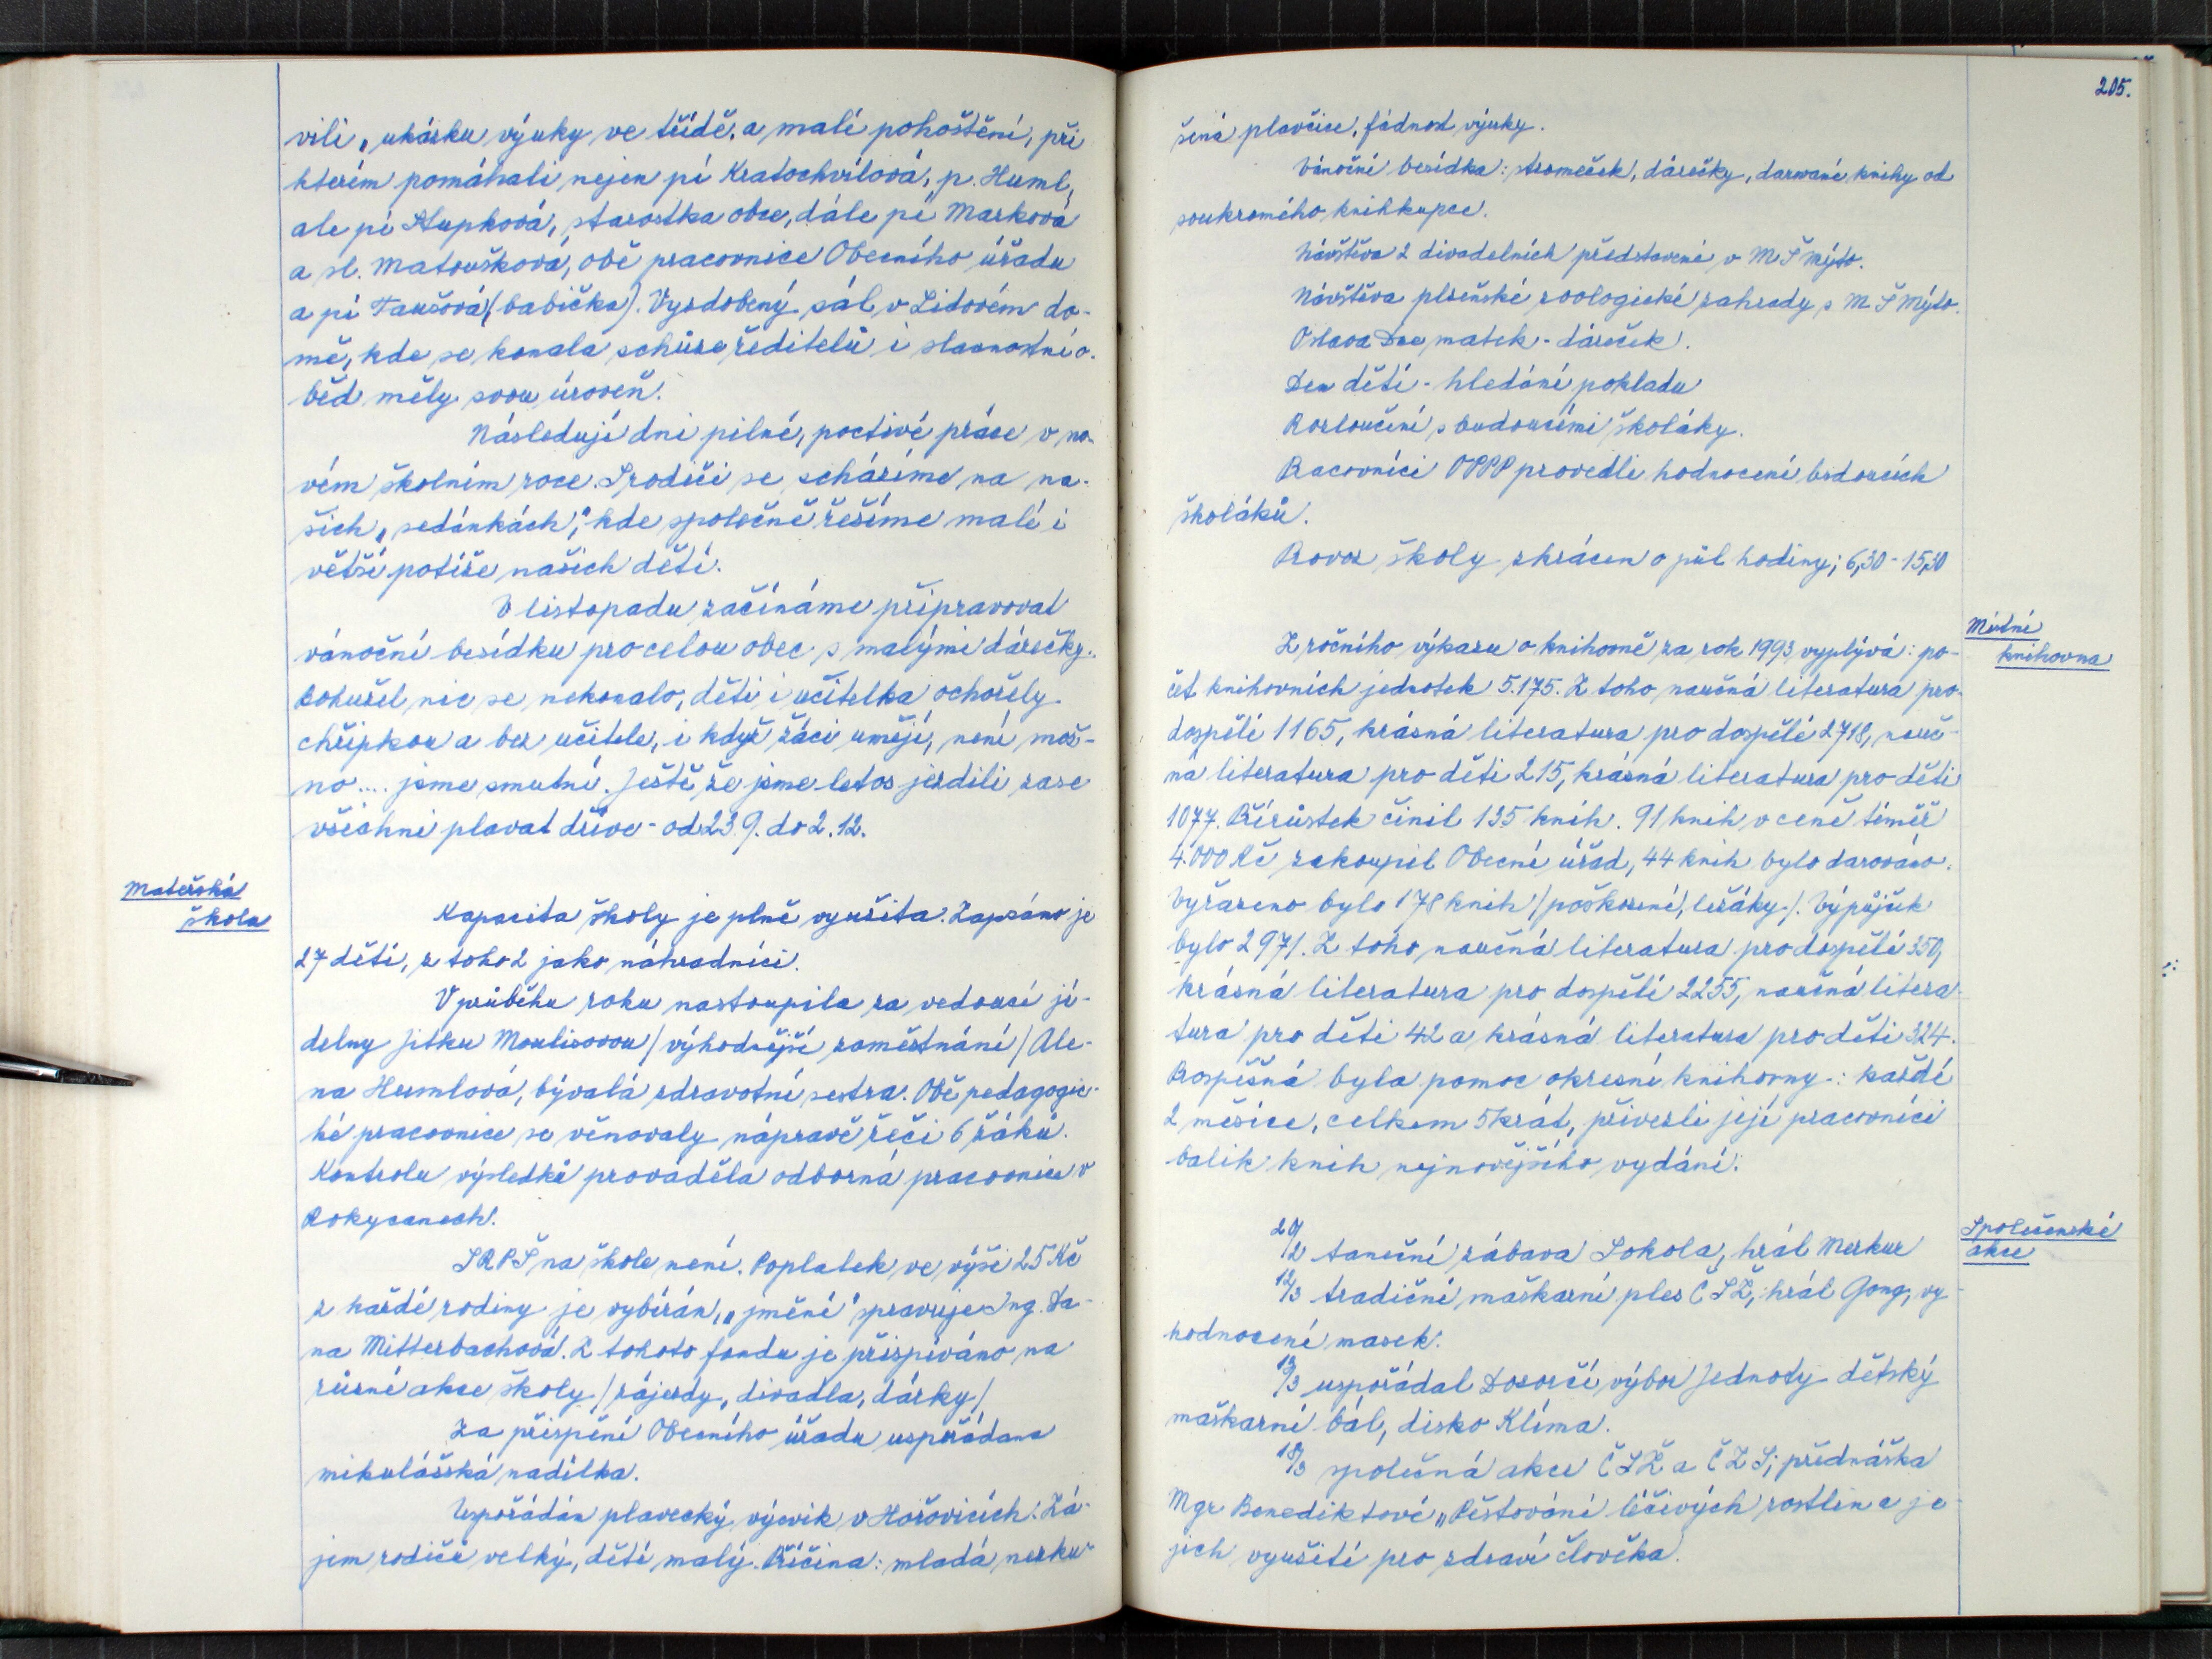 vili „ukázku výuky ve třídě, a malé pohoštění, při
kterém pomáhali nejen pí Kratochvílová, p. Huml,
ale pí Hupková, starostka obce, dále pí Marková
a sl. Matoušková, obě pracovnice Obecního úřadu
a pí Taušová (babička). Vyzdobený sál v Lidovém do-
mě, kde se konala schůze ředitelů i slavnostní o-
běd měly svou úroveň.
Následují dni pilné, poctivé práce v no-
vém školním roce. S rodiči se scházíme na na-
šich „sedánkách", kde společně řešíme malé i
větší potíže našich dětí.
V listopadu začínáme připravovat
vánoční besídku pro celou obec s malými dárečky.
Bohužel nic se nekonalo, děti i učitelka ochořely
chřipkou a bez učitele, i když žáci umějí, není mož-
no.... jsme smutní. Ještě že jsme letos jezdili zase
všichni plavat dříve - od 23.9. do 2.12.
Mateřská
škola
Kapacita školy je plně využita. Zapsáno je
27 dětí, z toho 2 jako náhradníci.
V průběhu roku nastoupila za vedoucí jí-
delny Jitku Moulisovou /výhodnější zaměstnání/ Ale-
na Humlová, bývalá zdravotní sestra. Obě pedagogic-
ké pracovnice se věnovaly nápravě řeči 6 žáků.
Kontrolu výsledků prováděla odborná pracovnice v
Rokycanech.
SRPŠ na škole není. Poplatek ve výši 25 Kč
z každé rodiny je vybírán, „jmění" spravuje Ing. Da-
na Mitterbachová. Z tohoto fondu je přispíváno na
různé akce školy /zájezdy, divadla, dárky/
Za přispění Obecního úřadu uspořádána
mikulášská nadílka.
Uspořádán plavecký výcvik v Hořovicích. Zá-
jem rodičů velký, dětí malý. Příčina: mladá nezku-
205.
šená plavčice, fádnost výuky.
Vánoční besídka: stromeček, dárečky, darované knihy od
soukromého knihkupce.
Návštěva 2 divadelních představení v MŠ Mýto.
Návštěva plzeňské zoologické zahrady s MŠ Mýto.
Oslava Dne matek - dáreček.
Den dětí - hledání pokladu
Rozloučení s budoucími školáky.
Pracovníci OPPP provedli hodnocení budoucích
školáků.
Provoz školy zkrácen o půl hodiny; 6,30 - 15,30
Místní
knihovna
Z ročního výkazu o knihovně za rok 1993 vyplývá: po-
čet knihovních jednotek 5.175. Z toho naučná literatura pro
dospělé 1165, krásná literatura pro dospělé 2718, nauč-
ná literatura pro děti 215, krásná literatura pro děti
1077. Přírůstek činil 135 knih. 91 knih v ceně téměř
4.000 Kč zakoupil Obecní úřad, 44 knih bylo darováno.
Vyřazeno bylo 178 knih /poškozené, ležáky/. Výpůjček
bylo 2971. Z toho naučná literatura pro dospělé 350,
krásná literatura pro dospělé 2255, naučná litera-
tura pro děti 42 a krásná literatura pro děti 324.
Prospěšná byla pomoc okresní knihovny -: každé
2 měsíce, celkem 5krát, přivezli její pracovníci
balík knih nejnovějšího vydání.
Společenské
akce
20/2 taneční zábava Sokola, hrál Merkur
12/3 tradiční maškarní ples ČSŽ, hrál Gong, vy-
hodnocení masek.
13/3 uspořádal Dozorčí výbor Jednoty dětský
maškarní bál, disko Klíma.
18/3 společná akce ČSŽ a ČZS; přednáška
Mgr Benediktové „Pěstování léčivých rostlin a je-
jich využití pro zdraví člověka.